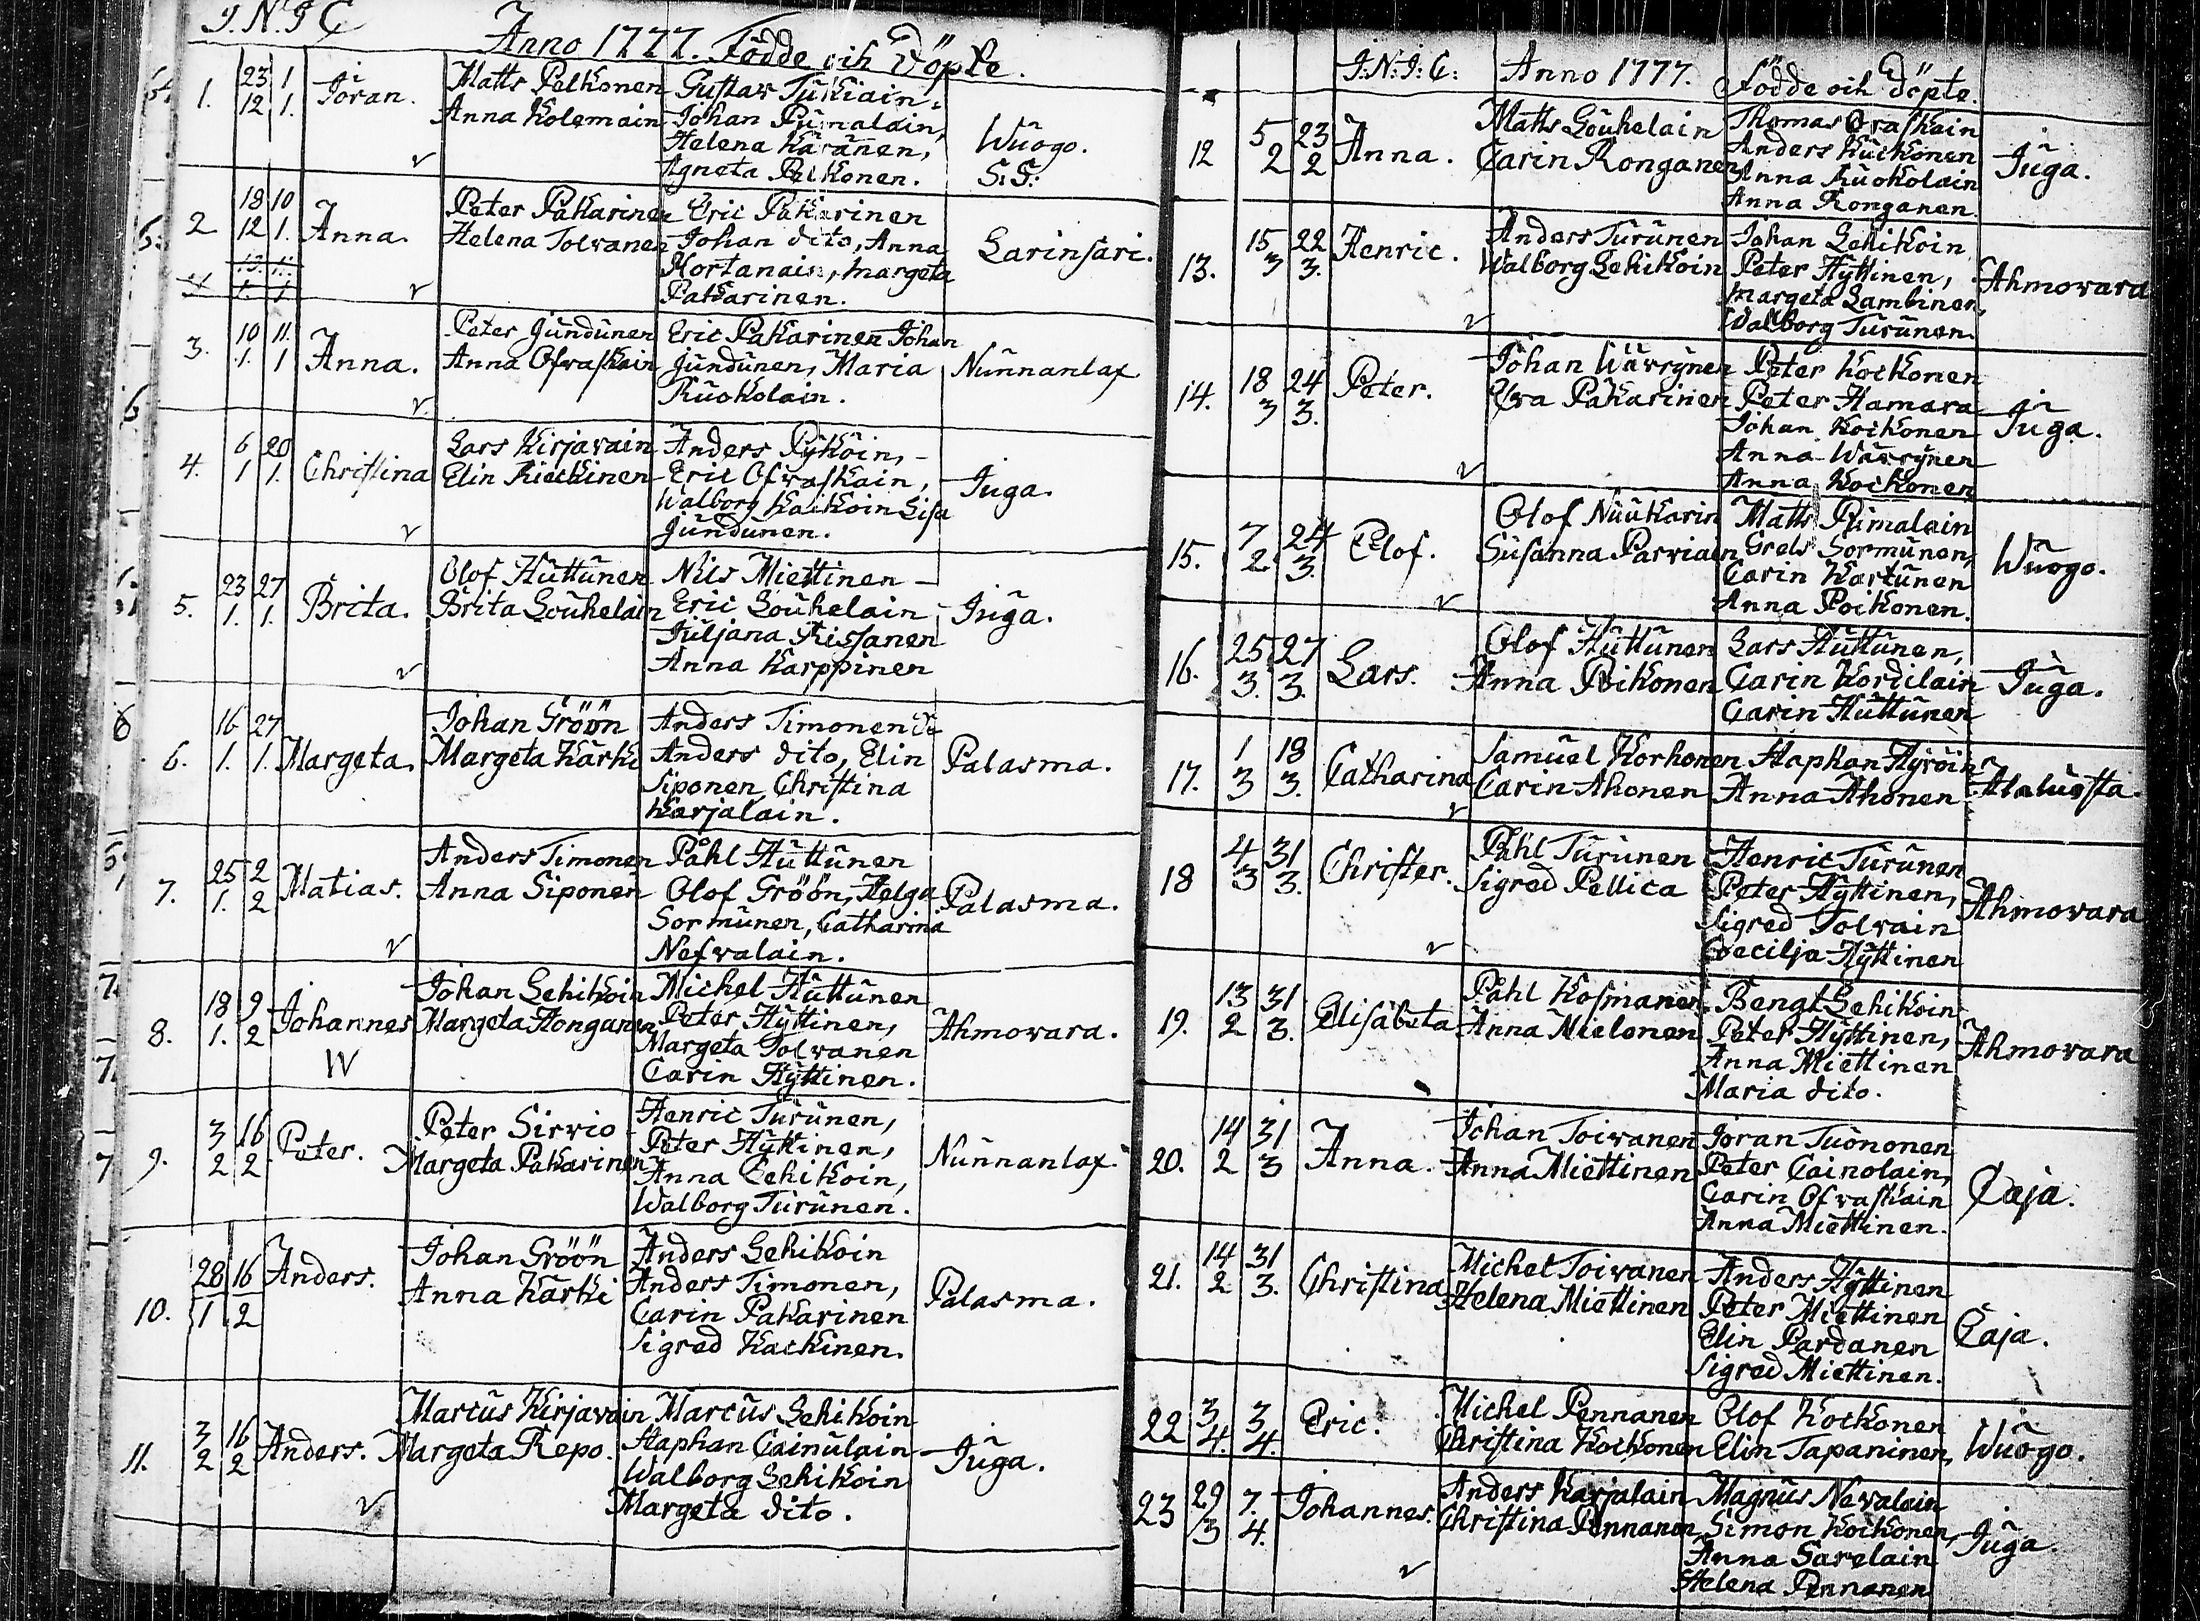 I.N.I C
Anno 1777. Födde och Döpte.
1. 23/12 1/1. Jöran. Matts Pelkonen Gustav Tukiain,
Anna Kolemain Johan Pümalain,
Helena Karänen, Wüogo.
Agneta Pelkonen. S.S:
2 18/12 10/1. Anna. Peter Pakarinen Eric Pakarinen
Helena Tolvanen Johan dito, Anna Larinsari.
Hortanain, Margeta
Pakarinen.
3. 10/1. 11./1 Anna. Peter Jündünen Eric Pakarinen Johan
Anna Ofvaskain Jündünen, Maria Nünnanlax
Rüokolain.
4. 6/1 20/1. Christina Lars Kirjavain Anders Pyköin,
Elin Rieckinen Eric Ofvaskain, Juga.
Walborg Kaikoin Lisa
Jündünen.
5. 23/1. 27/1. Brita. Olof Hüttünen Nils Miettinen
Brita Loühelain Eric Loühelain Jüga.
Jüljana Rissanen
Anna Karppinen
6. 16/1. 27/1. Margeta. Johan Gröön Anders Timonen
Margeta Kärki Anders dito, Elin Palasma.
Siponen Christina
Karjalain.
7. 25/1. 2/2 Matias. Anders Timonen Påhl Hüttünen
Anna Siponen Olof Gröön, Helga Palasma.
Sormünen, Catharina
Nefvalain.
8. 18/1. 9/2 Johannes Johan Lehikoin Michel Hüttünen
Margeta Honganen Peter Hyttinen, Ahmovara.
Margeta Tolvanen
Carin Hyttinen.
9. 3/2 16/2 Peter. Peter Sirvio Henric Türünen,
Margeta Pakarinen Peter Hyttinen, Nünnanlax
Anna Lehikoin,
Walborg Türünen.
10. 28/1 16/2 Anders. Johan Gröön Anders Lehikoin
Anna Kärki Anders Timonen, Palasma.
Carin Pakarinen
Sigred Kackinen.
11. 3/2 16/2 Anders. Marcüs Kirjavain Marcüs Lehikoin
Margeta Repo. Staphan Cainülain Jüga.
Walborg Lehikoin
Margeta dito.
I:N:I:C: Anno 1777. Födde och Döpte.
12 5/2 23/2 Anna. Matts Loühelain Thomas Ovaskain
Carin Ronganen Anders Kückonen Jüga.
Anna Rüokolain
Anna Ronganen
13. 15/3 22/3. Henric. Anders Türünen Johan Lehikoin
Walborg Lehikoin Peter Hyttinen, Ahmovara
Margeta Lambinen,
Walborg Türünen.
14. 18/3 24/3. Peter. Johan Wärrynen Peter Kockonen
Eva Pakarinen Peter Hamara Jüga.
Johan Kockonen
Anna Wärrynen
Anna Kockonen
15. 7/2 24/3. Olof. Olof Nüükarin Matts Pümalain
Süsanna Parviain Grels Sormünen, Wüogo.
Carin Kartünen
Anna Poikonen.
16. 25/3. 27/3. Lars. Olof Hüttünen Lars Hüttünen,
Anna Poikonen Carin Kordilain Jüga.
Carin Hüttünen
17. 1/3 18/3. Catharina Samüel Korhonen Staphan Hyröin
Carin Ahonen Anna Ahonen Halüosta.
18 4/3 31/3. Christer. Påhl Türünen Henric Türünen
Sigred Pellica Peter Hyttinen, Ahmovara
Sigred Tolvain
Coecilja Hyttinen
19. 13/2 31/3. Elisabeta Påhl Kosmanen Bengt Lehikoin
Anna Nielonen Peter Hyttinen, Ahmovara
Anna Miettinen
Maria dito.
20. 14/2 31/3 Anna. Johan Toivanen Jöran Tüononen
Anna Miettinen Peter Cainolain,
Carin Ofvaskain Caja.
Anna Miettinen.
21. 14/2 31/3. Christina Michel Toivanen Anders Hyttinen
Helena Miettinen Peter Miettinen
Elin Pardanen Caja.
Sigred Miettinen.
22 3/4. 3/4. Eric. Michel Pennanen Olof Kockonen
Christina Kockonen Elin Tapaninen, Wüogo.
23 29/3 7./4. Johannes. Anders Karjalain Magnüs Nevalain
Christina Pennanen Simon Kockonen, Jüga.
Anna Savelain
Helena Pennanen